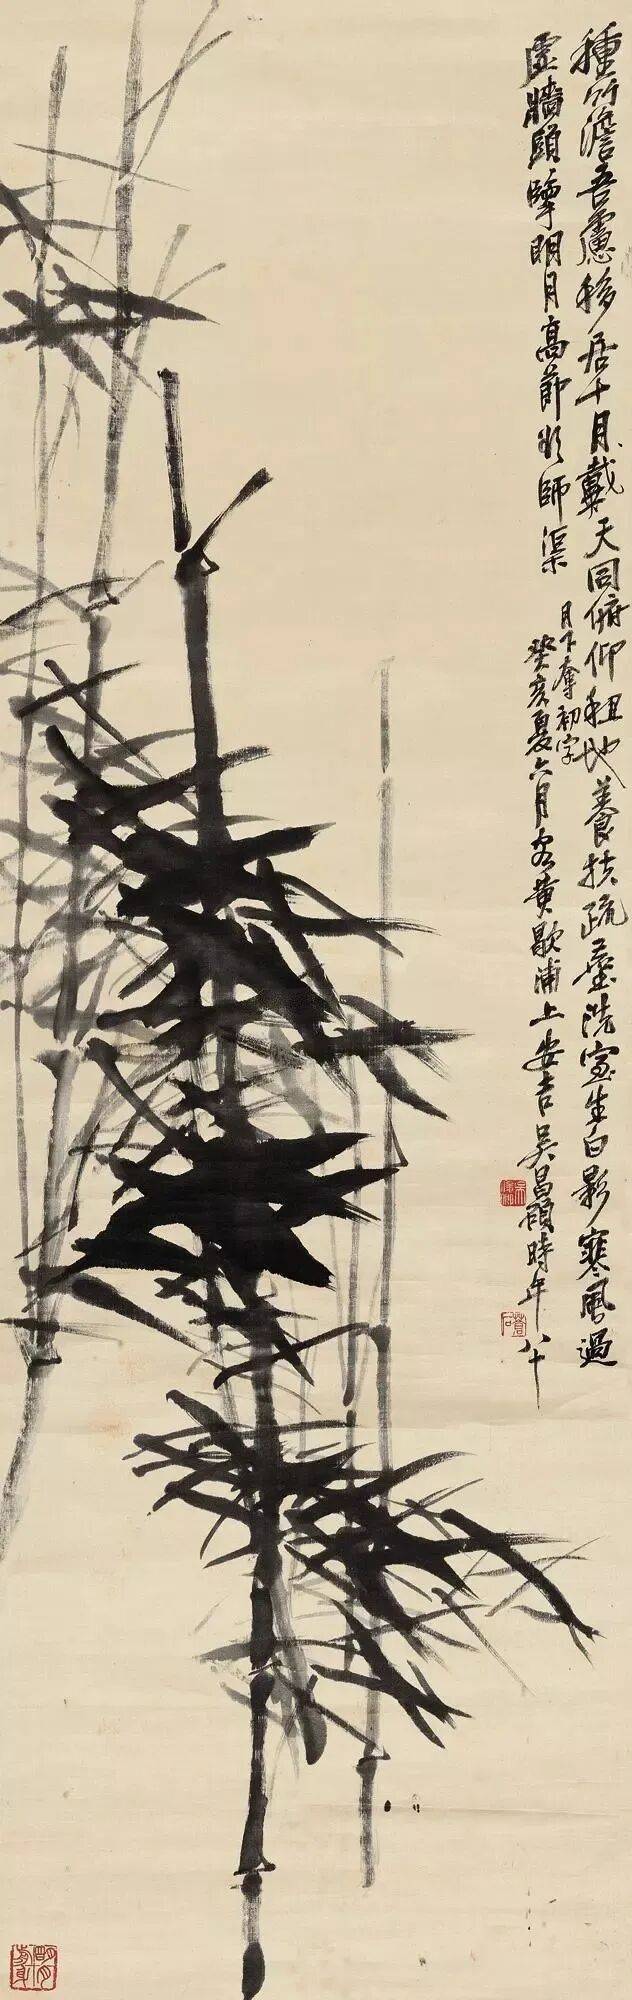 種竹澹吾慮移居十月戴天同俯仰租地養扶疏塵洗室生白影寒風過
虛牆頭明月高節師渠
月下奪初字
癸亥夏六月客黃歇浦上安吉吳昌碩時年八十
明月前身